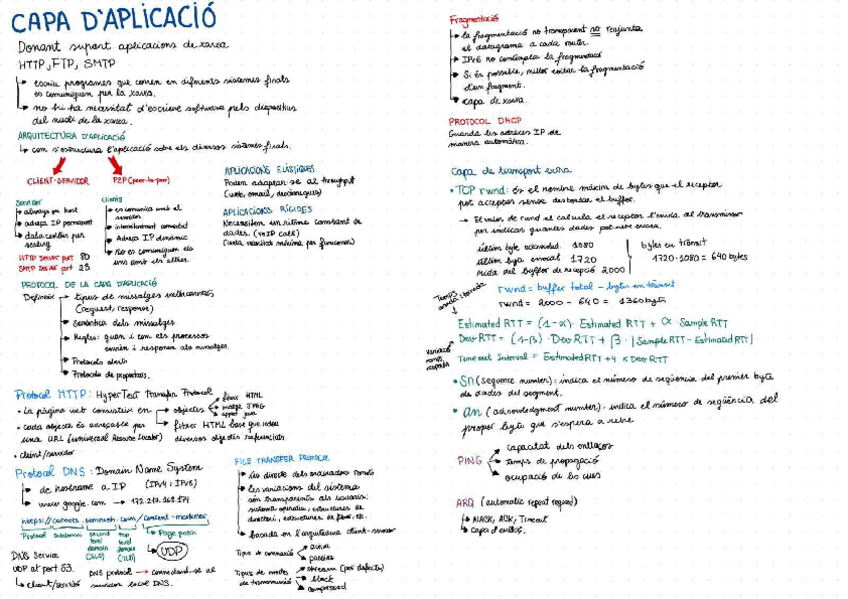 CAPA D'APLICACIÓ
Donant suport aplicacions de xarxa
HTTP, FTP, SMTP
escriu programes que corren en diferents sistemes finals
es comuniquen per la xarxa.
no hi ha necessitat d'escriure software pels dispositius
del nucli de la xarxa.
ARQUITECTURA D'APLICACIÓ
com s'estructura l'aplicació sobre els diversos sistemes finals.
CLIENT-SERVIDOR
P2P (peer-to-peer)
Servidor
always on host
adreça IP permanent
data centers per
scaling
HTTP server port 80
SMTP server port 25
clients
es comunica amb el
servidor
intermitentment connectat
Adreça IP dinàmic
No es comuniquen els
uns amb els altres
APLICACIONS ELÀSTIQUES
Poden adaptar-se al throughput
(web, email, descàrregues)
APLICACIONS RÍGIDES
Necessiten un ritme constant de
dades. (VoIP call)
(certa velocitat mínima per funcionar)
PROTOCOL DE LA CAPA D'APLICACIÓ
Defineix
tipus de missatges intercanviats
(request, response)
Semàntica dels missatges
Regles: quan i com els processos
envien i responen als missatges.
Protocols oberts
Protocols de propietaris.
Protocol HTTP: HyperText Transfer Protocol
La pàgina web consisteix en
objectes
fitxer HTML
imatge JPEG
applet java
cada objecte és avaluable per
una URL (Universal Resource Locator)
fitxer HTML base que inclou
diversos objectes referenciats.
client/servidor
Protocol DNS: Domain Name System
de hostname a IP (IPv4; IPv6)
www.google.com → 172.217.168.174
Protocol
second
level
domain
(SLD)
top
level
domain
(TLD)
Page path
UDP
DNS Service
UDP at port 53.
client/servidor
DNS protocol → connectant-se al
servidor local DNS.
FILE TRANSFER PROTOCOL
Ús directe dels ordinadors remots
les variacions del sistema
són transparents als usuaris:
sistema operatiu, estructures de
directori, estructures de fitxer, etc.
basada en l'arquitectura client-servidor
Tipus de connexió
activa
passiva
Tipus de modes
de transmissió
stream (per defecte)
block
compressed
Fragmentació
la fragmentació no transparent no reajunta
el datagrama a cada router.
IPv6 no contempla la fragmentació
Si és possible, millor evitar la fragmentació
d'un fragment.
capa de xarxa.
PROTOCOL DHCP
Guarda les adreces IP de
manera automàtica.
Capa de transport extra
TCP rwnd: és el nombre màxim de bytes que el receptor
pot acceptar sense desbordar el buffer.
El valor de rwnd el calcula el receptor i l'envia al transmissor
per indicar quantes dades pot rebre encara.
últim byte acknowled. 1080
últim byte enviat 1720
mida del buffer de recepció 2000
bytes en trànsit
1720-1080 = 640 bytes
rwnd = buffer total - bytes en trànsit
rwnd = 2000 - 640 = 1360 bytes
Temps
anada i tornada
Estimated RTT = (1-α) · Estimated RTT + α · Sample RTT
Dev RTT = (1-β) · Dev RTT + β · |Sample RTT - Estimated RTT|
Variació
Timeout Interval = Estimated RTT + 4 × Dev RTT
Sn (sequence number): indica el número de seqüència del primer byte
de dades del segment.
An (acknowledgment number): indica el número de seqüència del
proper byte que s'espera a rebre.
PING
capacitat dels enllaços
temps de propagació
ocupació de les cues
ARQ (automatic repeat request)
NACK, ACK, Timeout
capa d'enllaç.